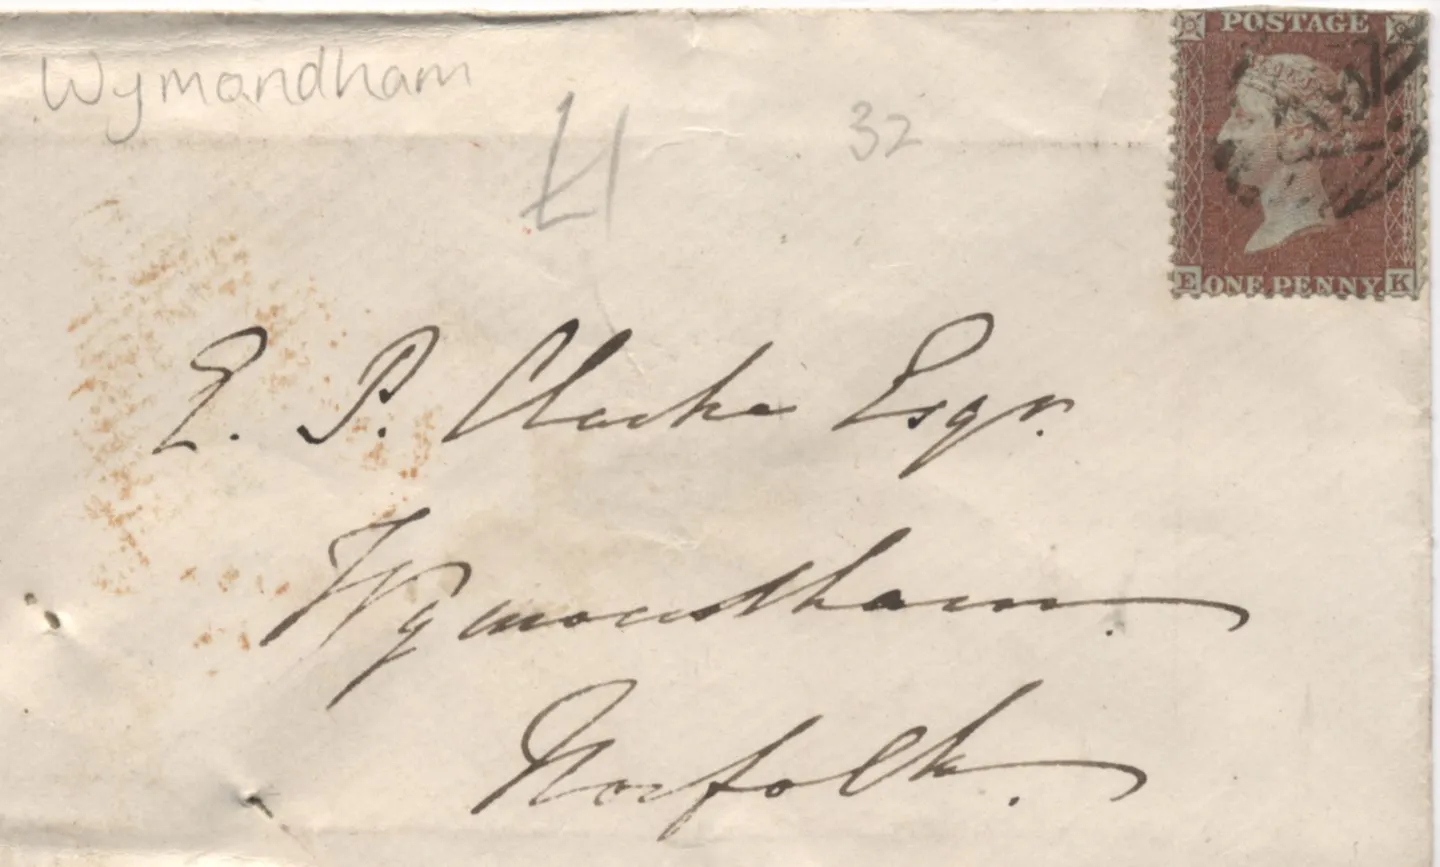 Wymondham
£1
32
POSTAGE
E ONE PENNY K
E. P. Clarke Esqr.
Wymondham.
Norfolk.